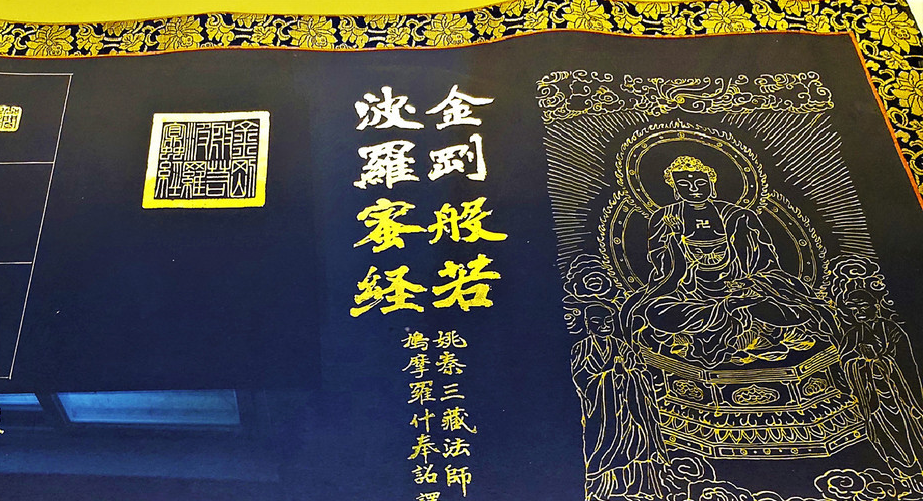 金剛般若
波羅蜜経
姚秦三藏法師
鳩摩羅什奉詔譯
金剛
般若
波羅
蜜經